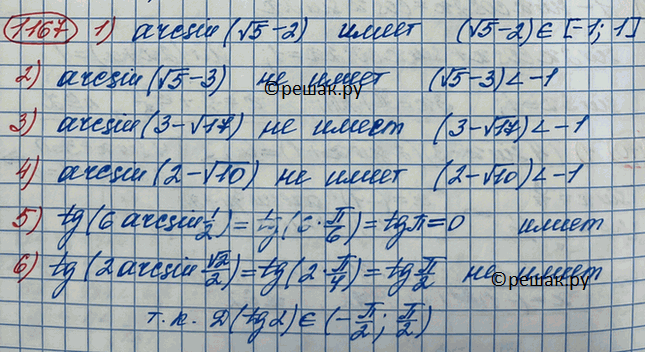 1167 1) arcsin (√5-2) имеет (√5-2) ∈ [-1; 1]
2) arcsin (√5-3) не имеет (√5-3) < -1
©решак.ру
3) arcsin (3-√17) не имеет (3-√17) < -1
4) arcsin (2-√10) не имеет (2-√10) < -1
5) tg (6 arcsin 1/2) = tg (6 · π/6) = tg π = 0 имеет
6) tg (2 arcsin √2/2) = tg (2 · π/4) = tg π/2 не имеет
©решак.ру
т.к. D (tg2) ∈ (-π/2; π/2)